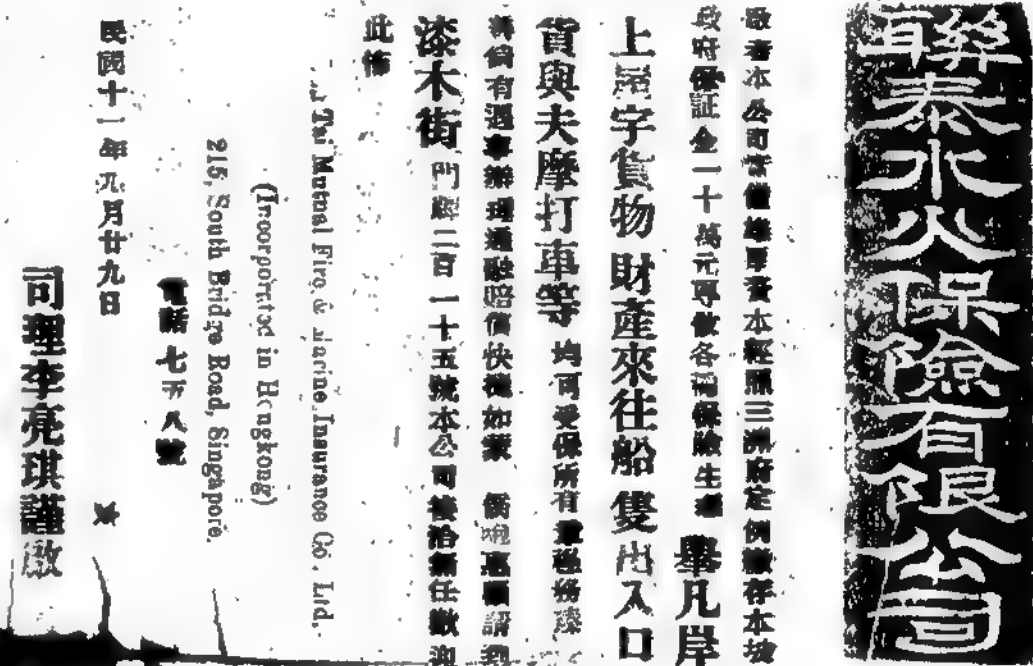 聯泰水火保險有限公司
啟者本公司資本經照三洲府定例繳存本坡
政府保証金二十萬元專做各種保險生意 舉凡岸
上屋宇貨物 財產來往船隻出入口
貨與夫摩打車等 均可受保所有
倘有遇事辦理通融賠償快捷如蒙 僑胞惠顧請到
漆木街 門牌二百一十五號本公司接洽無任歡迎
此佈
Tai Mutual Fire & Marine Insurance Co., Ltd.
(Incorporated in Hongkong)
215, South Bridge Road, Singapore.
電話七五八號
民國十一年九月廿九日
司理李亮琪謹啟